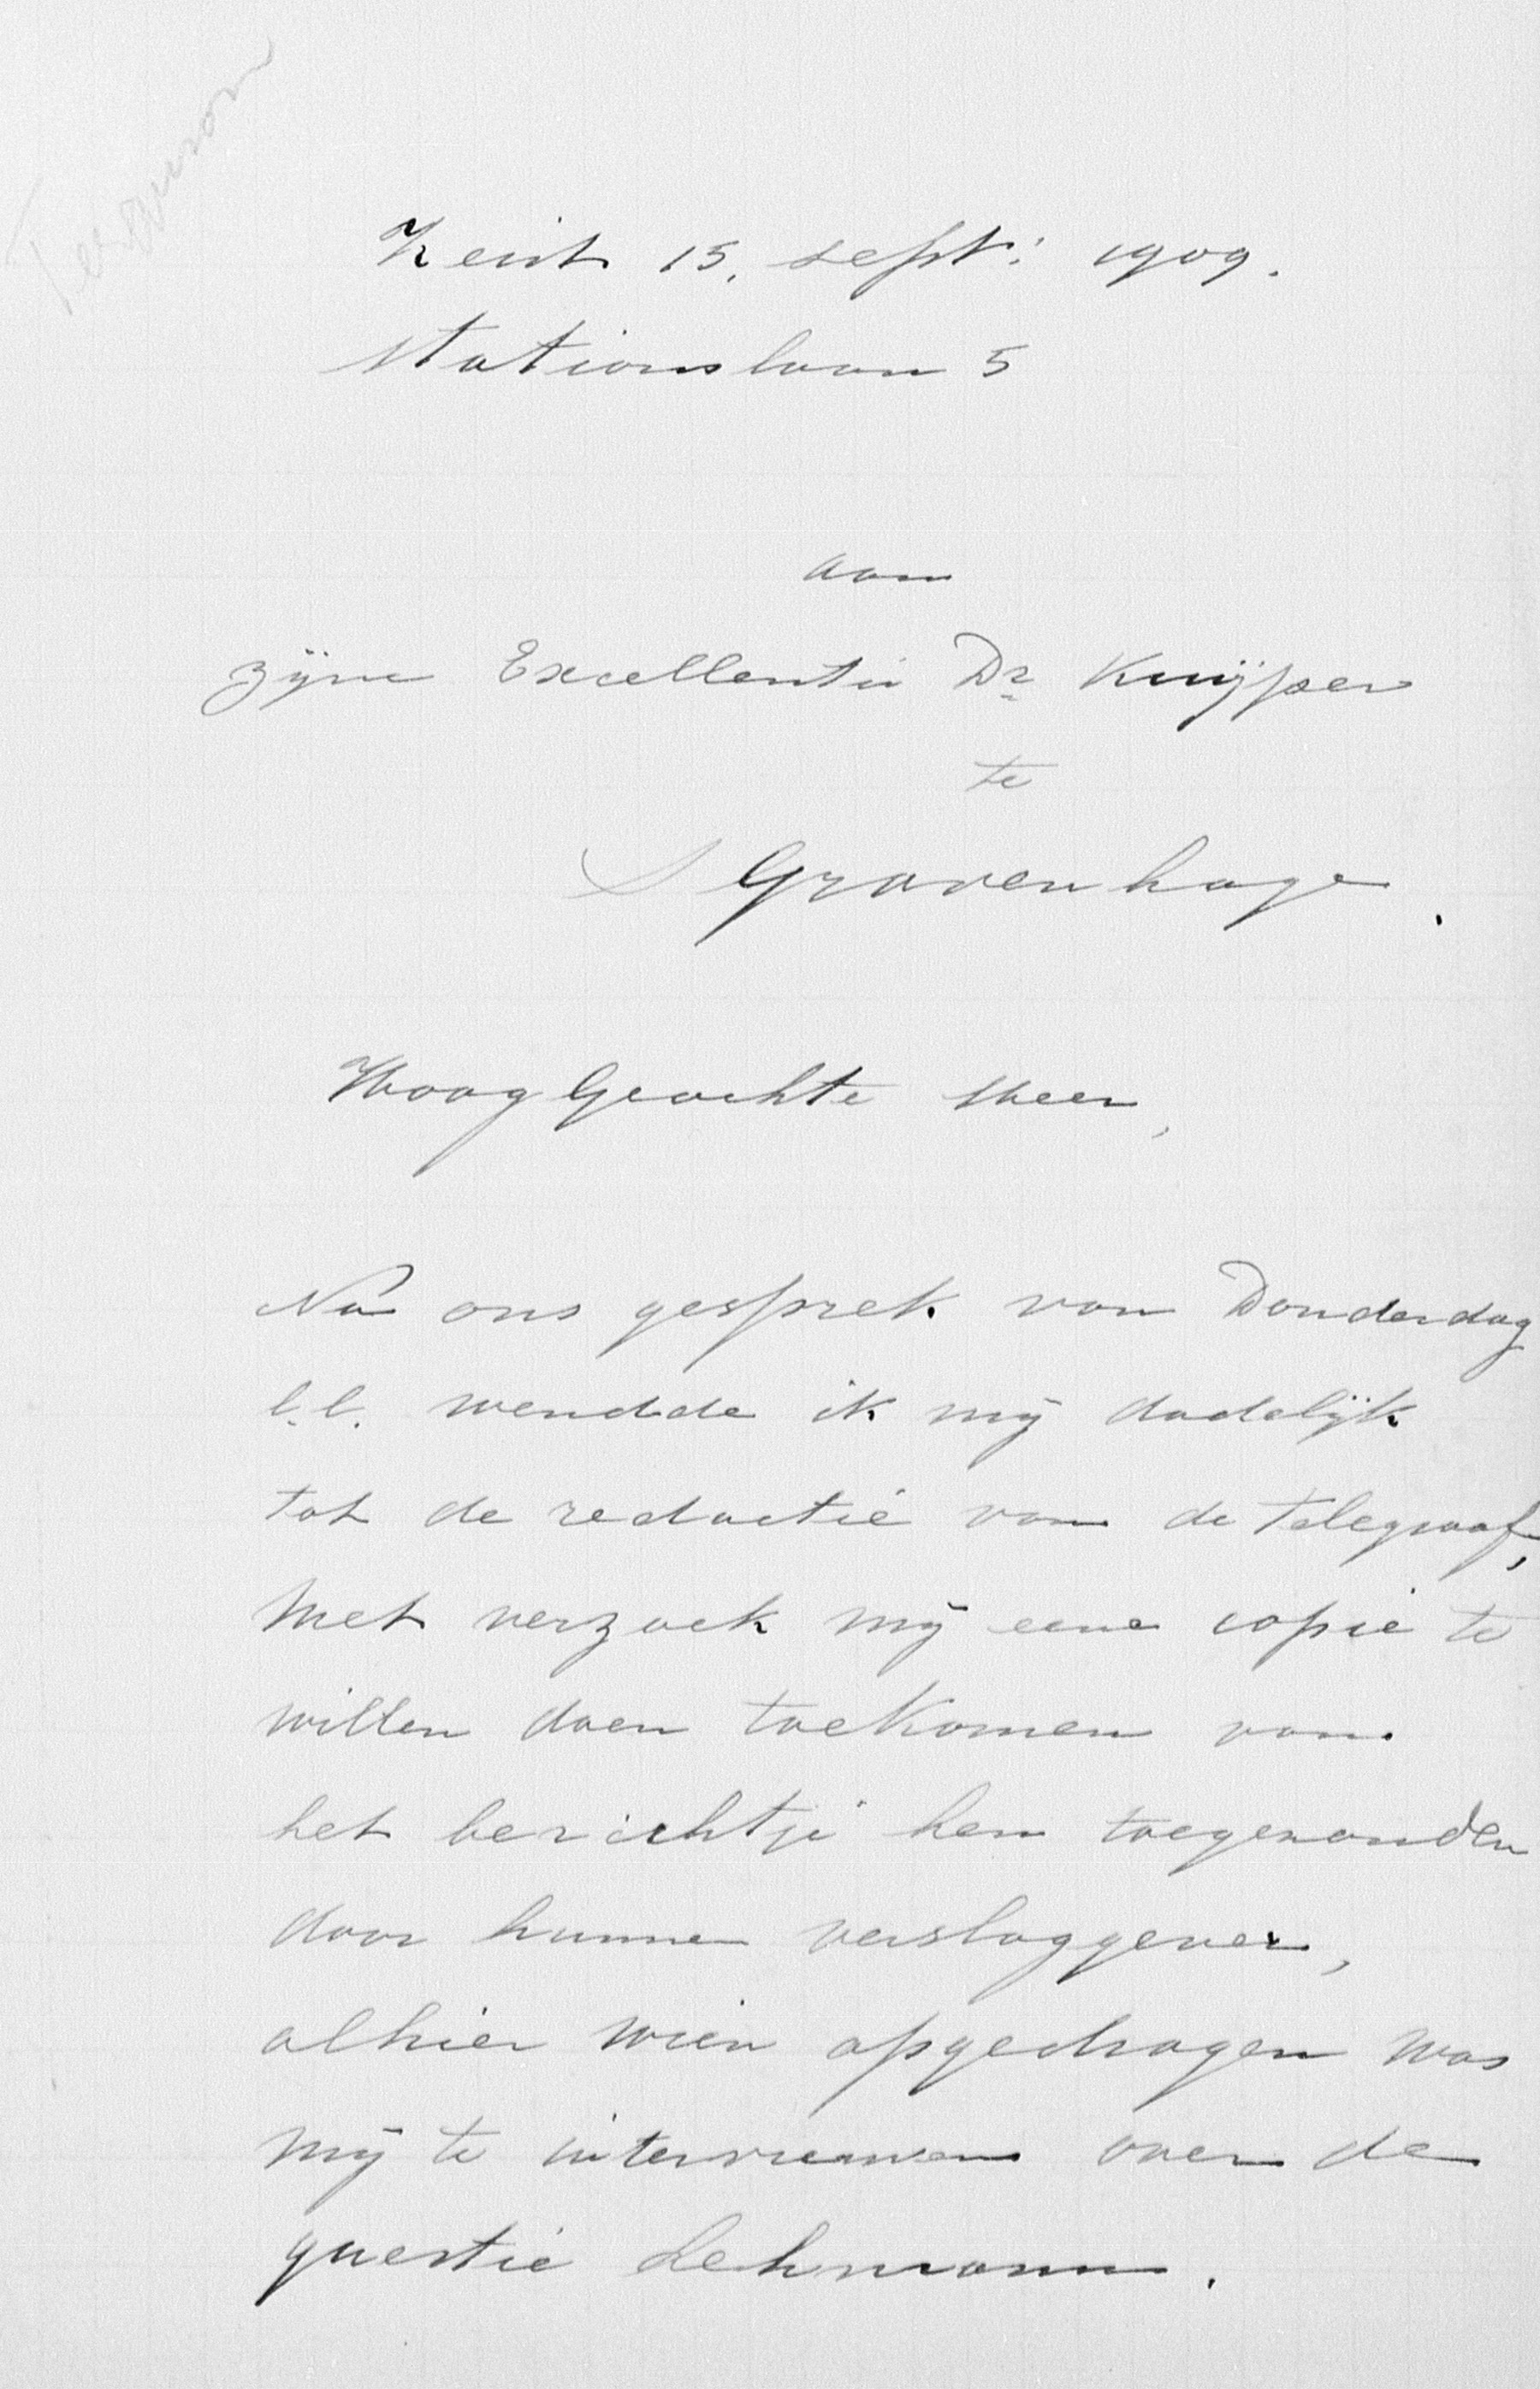 Ferguson
Zeist 15. Sept: 1909.
Stationslaan 5
aan
Zijne Excellentie Dr Kuijper
te
S Gravenhage.
Hoog Geachte Heer,
Na ons gesprek van Donderdag
l.l. wendde ik mij dadelijk
tot de redactie van de Telegraaf,
met verzoek mij eene copie te
willen doen toekomen van
het berichtje hen toegezonden
door hunne verslaggever,
alhier wien opgedragen was
mij te interviewen over de
questie Lehmann.